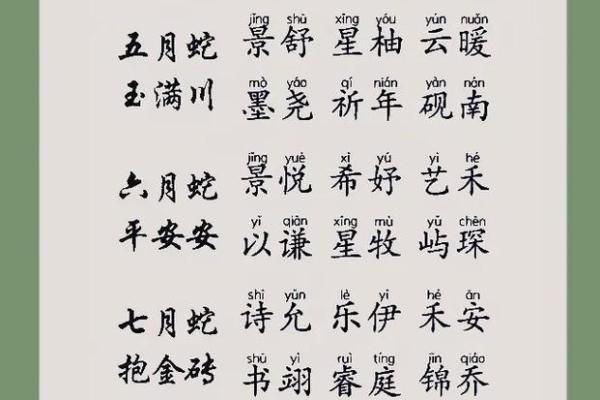 jǐng shū xīng yóu yún nuǎn
五月蛇 景舒 星柚 云暖
mò yáo qí nián yàn nán
玉满川 墨尧 祈年 砚南
jǐng yuè xī yú yì hé
六月蛇 景悦 希妤 艺禾
yǐ qiān xīng mù yǔ chēn
平安安 以谦 星牧 屿琛
shī yǔn lè yī hé ān
七月蛇 诗允 乐伊 禾安
shū yì ruì tíng jǐn qiáo
抱金砖 书翊 睿庭 锦乔